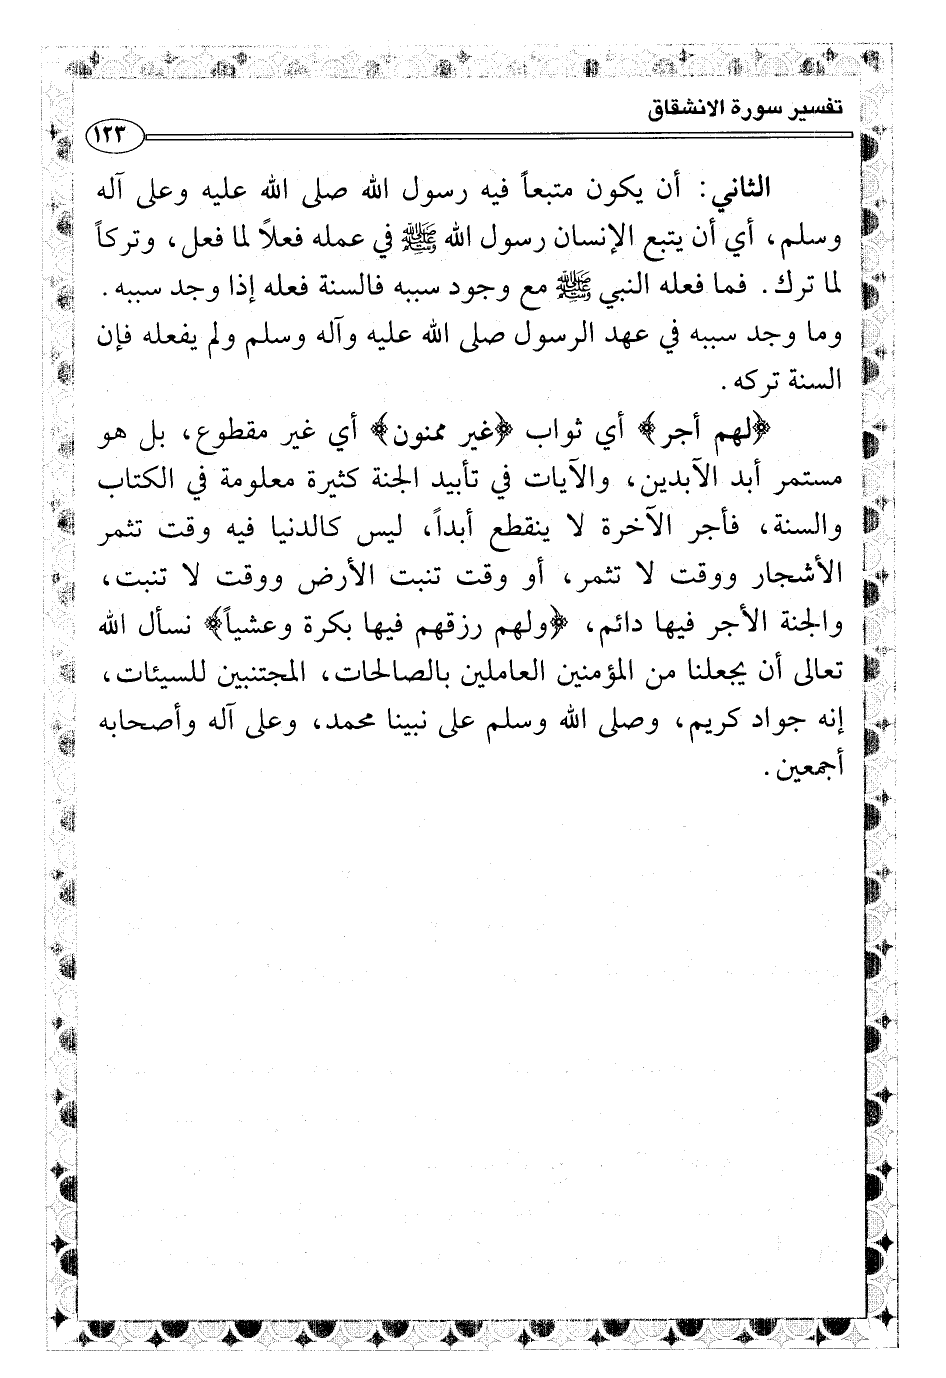 تفسير سورة الانشقاق
١٢٣
الثاني: أن يكون متبعاً فيه رسول الله صلى الله عليه وعلى آله
وسلم، أي أن يتبع الإنسان رسول الله ﷺ في عمله فعلاً لما فعل، وتركاً
لما ترك. فما فعله النبي ﷺ مع وجود سببه فالسنة فعله إذا وجد سببه.
وما وجد سببه في عهد الرسول صلى الله عليه وآله وسلم ولم يفعله فإن
السنة تركه.
﴿لهم أجر﴾ أي ثواب ﴿غير ممنون﴾ أي غير مقطوع، بل هو
مستمر أبد الآبدين، والآيات في تأبيد الجنة كثيرة معلومة في الكتاب
والسنة، فأجر الآخرة لا ينقطع أبداً، ليس كالدنيا فيه وقت تثمر
الأشجار ووقت لا تثمر، أو وقت تنبت الأرض ووقت لا تنبت،
والجنة الأجر فيها دائم، ﴿ولهم رزقهم فيها بكرة وعشياً﴾ نسأل الله
تعالى أن يجعلنا من المؤمنين العاملين بالصالحات، المجتنبين للسيئات،
إنه جواد كريم، وصلى الله وسلم على نبينا محمد، وعلى آله وأصحابه
أجمعين.